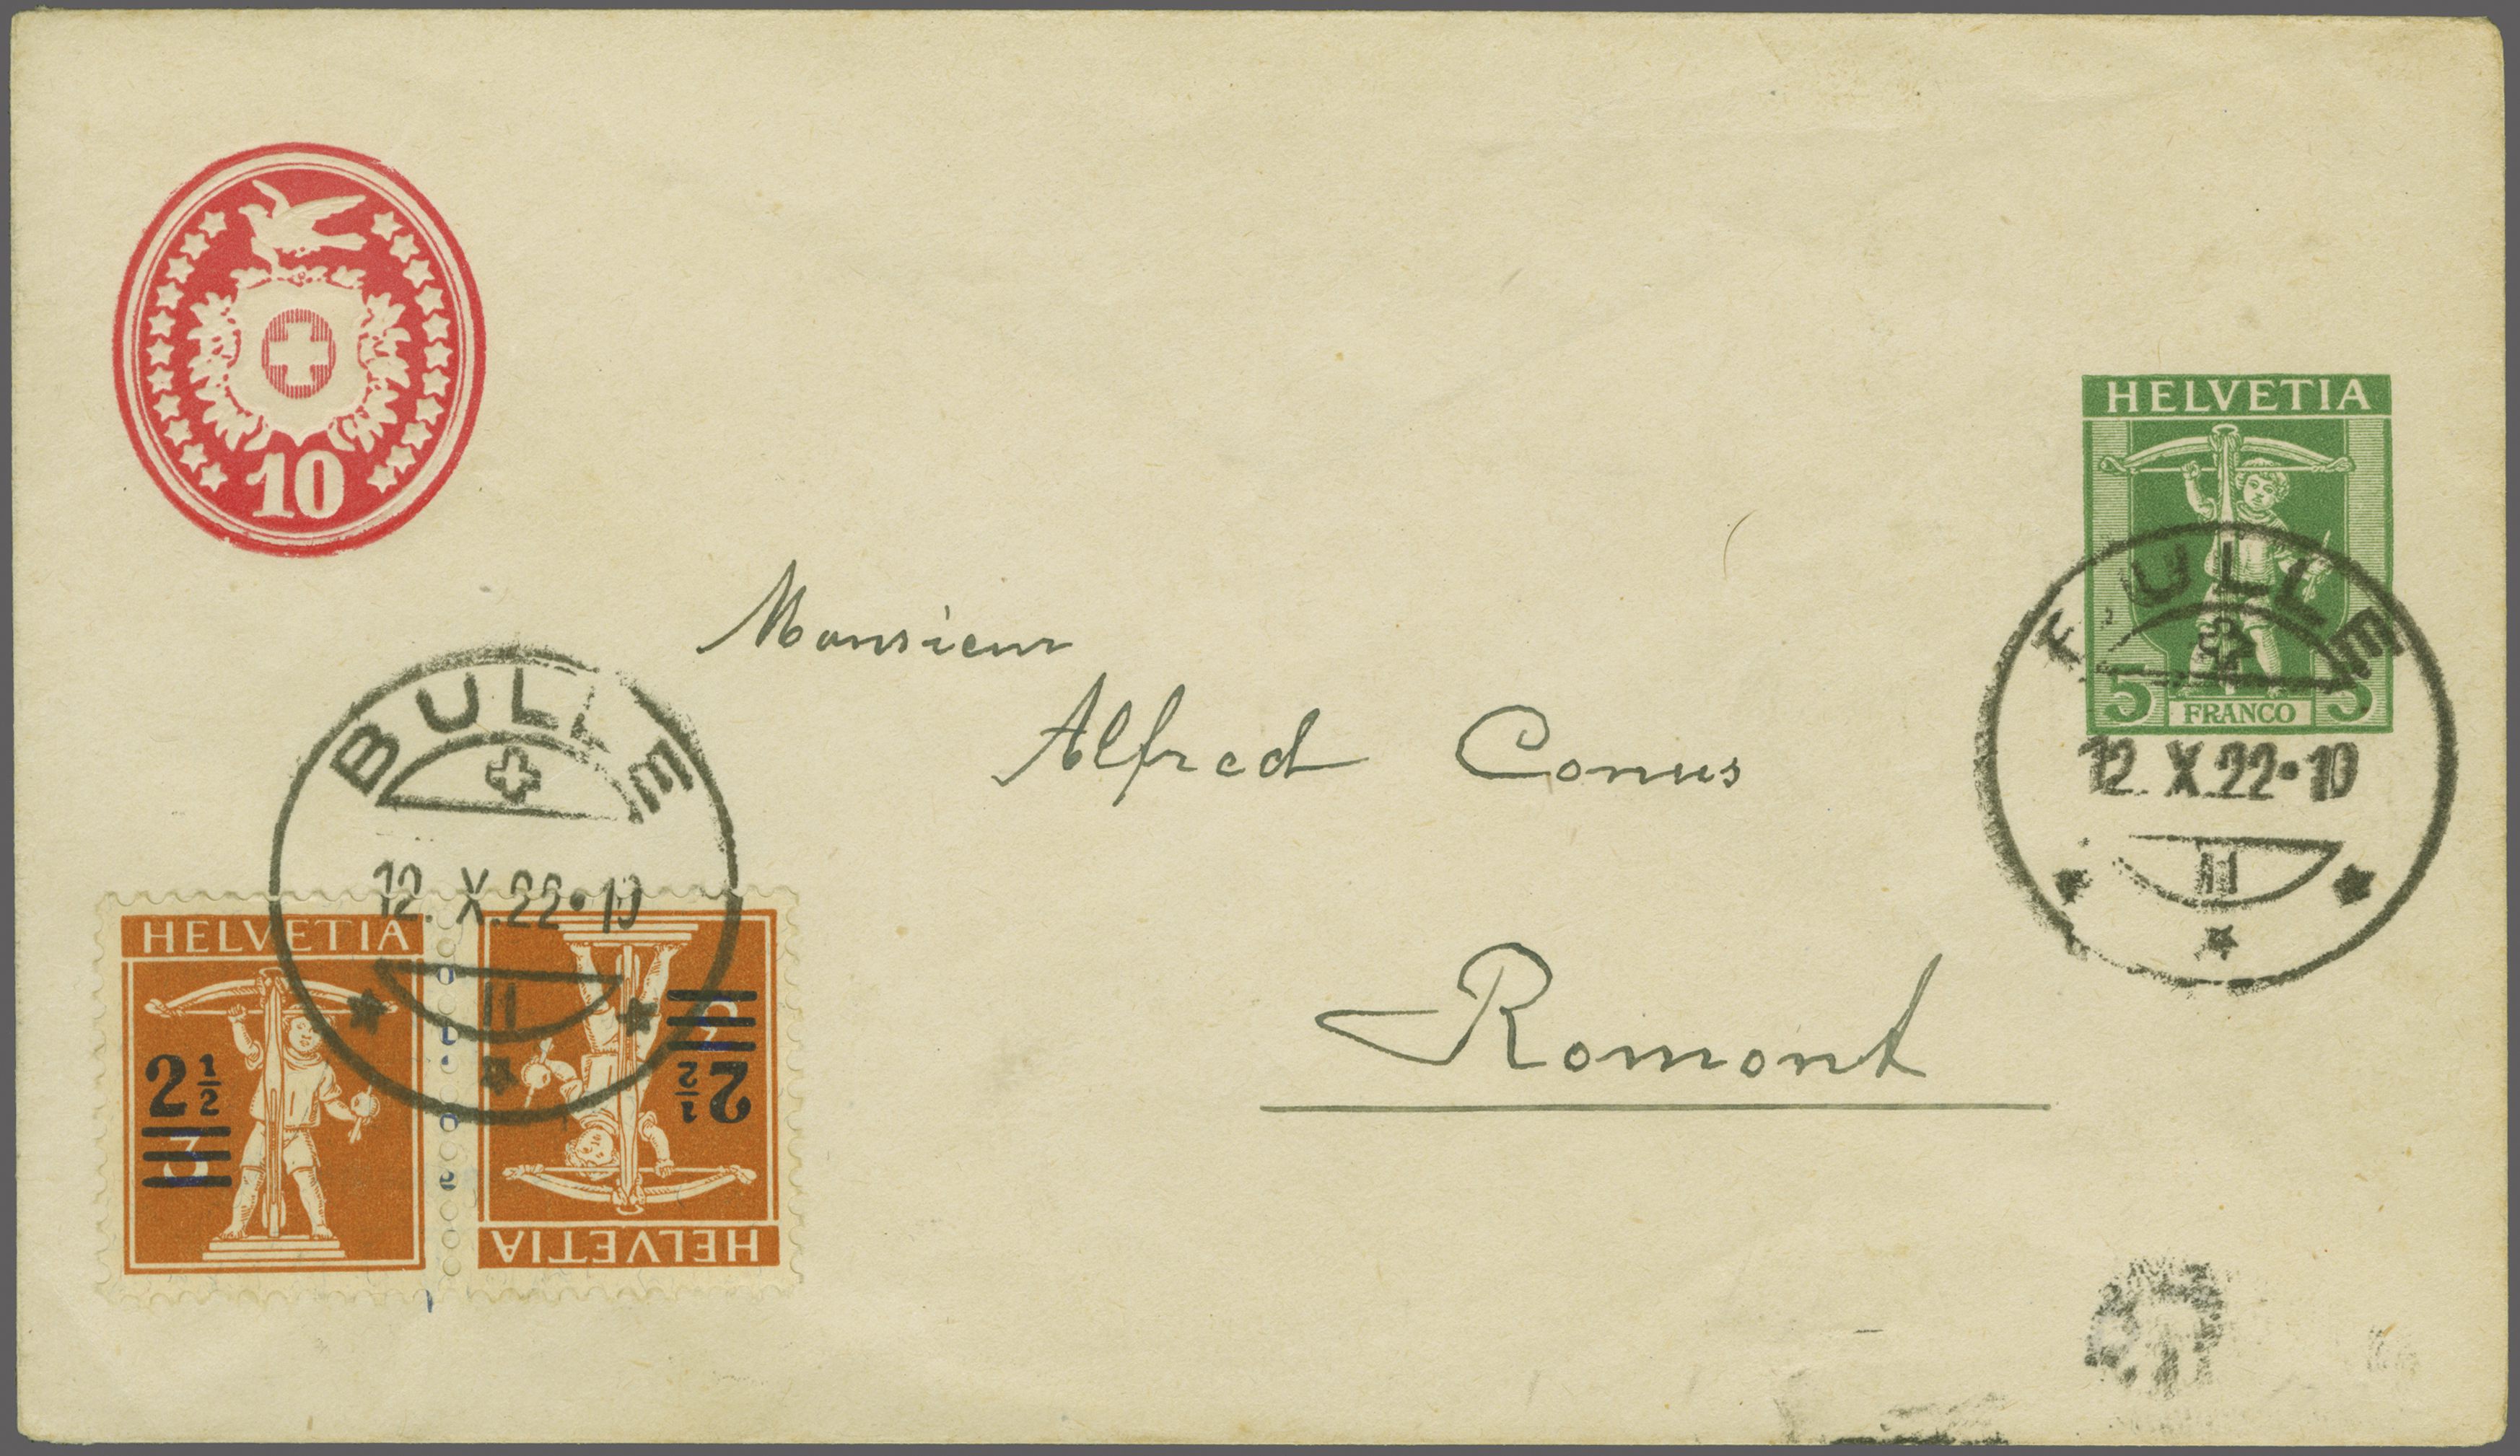 10
HELVETIA
5 FRANCO 5
BULLE
12. X.22•10
II
Monsieur
Alfred Conus
Romont
BULLE
12. X.22•10
II
HELVETIA
2 1/2
3
HELVETIA
2 1/2
3